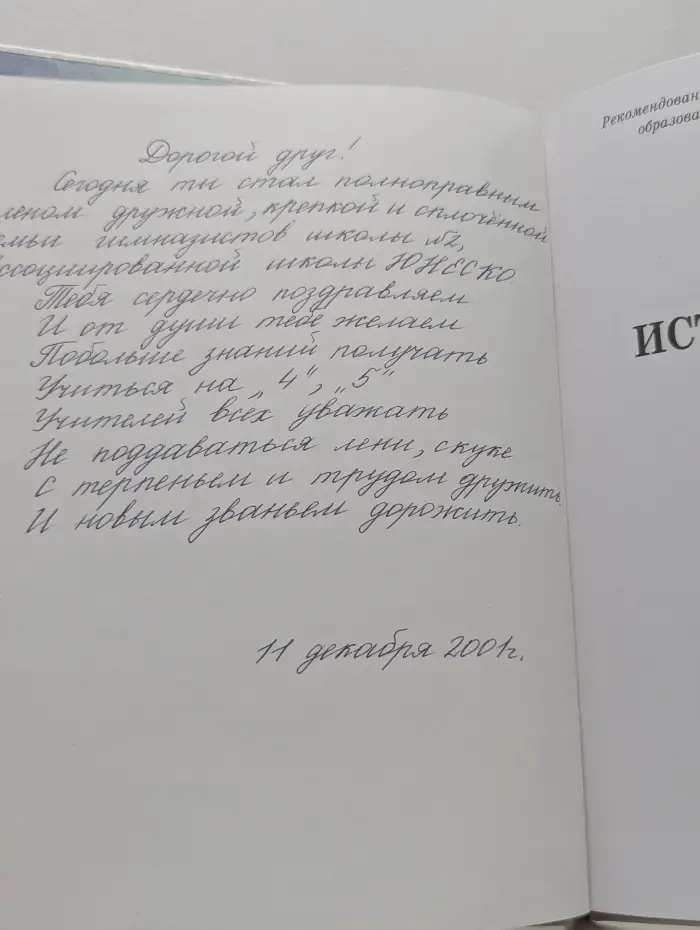 Дорогой друг!
Сегодня ты стал полноправным
леном дружной, крепкой и сплочённой
емьи гимназистов школы №2,
ссоциированной школы ЮНЕСКО.
Тебя сердечно поздравляем
И от души тебе желаем
Побольше знаний получать
Учиться на „4“, „5“
Учителей всех уважать
Не поддаваться лени, скуке
С терпеньем и трудом дружить.
И новым званьем дорожить.
11 декабря 2001г.
Рекомендован
образова
ИСТ